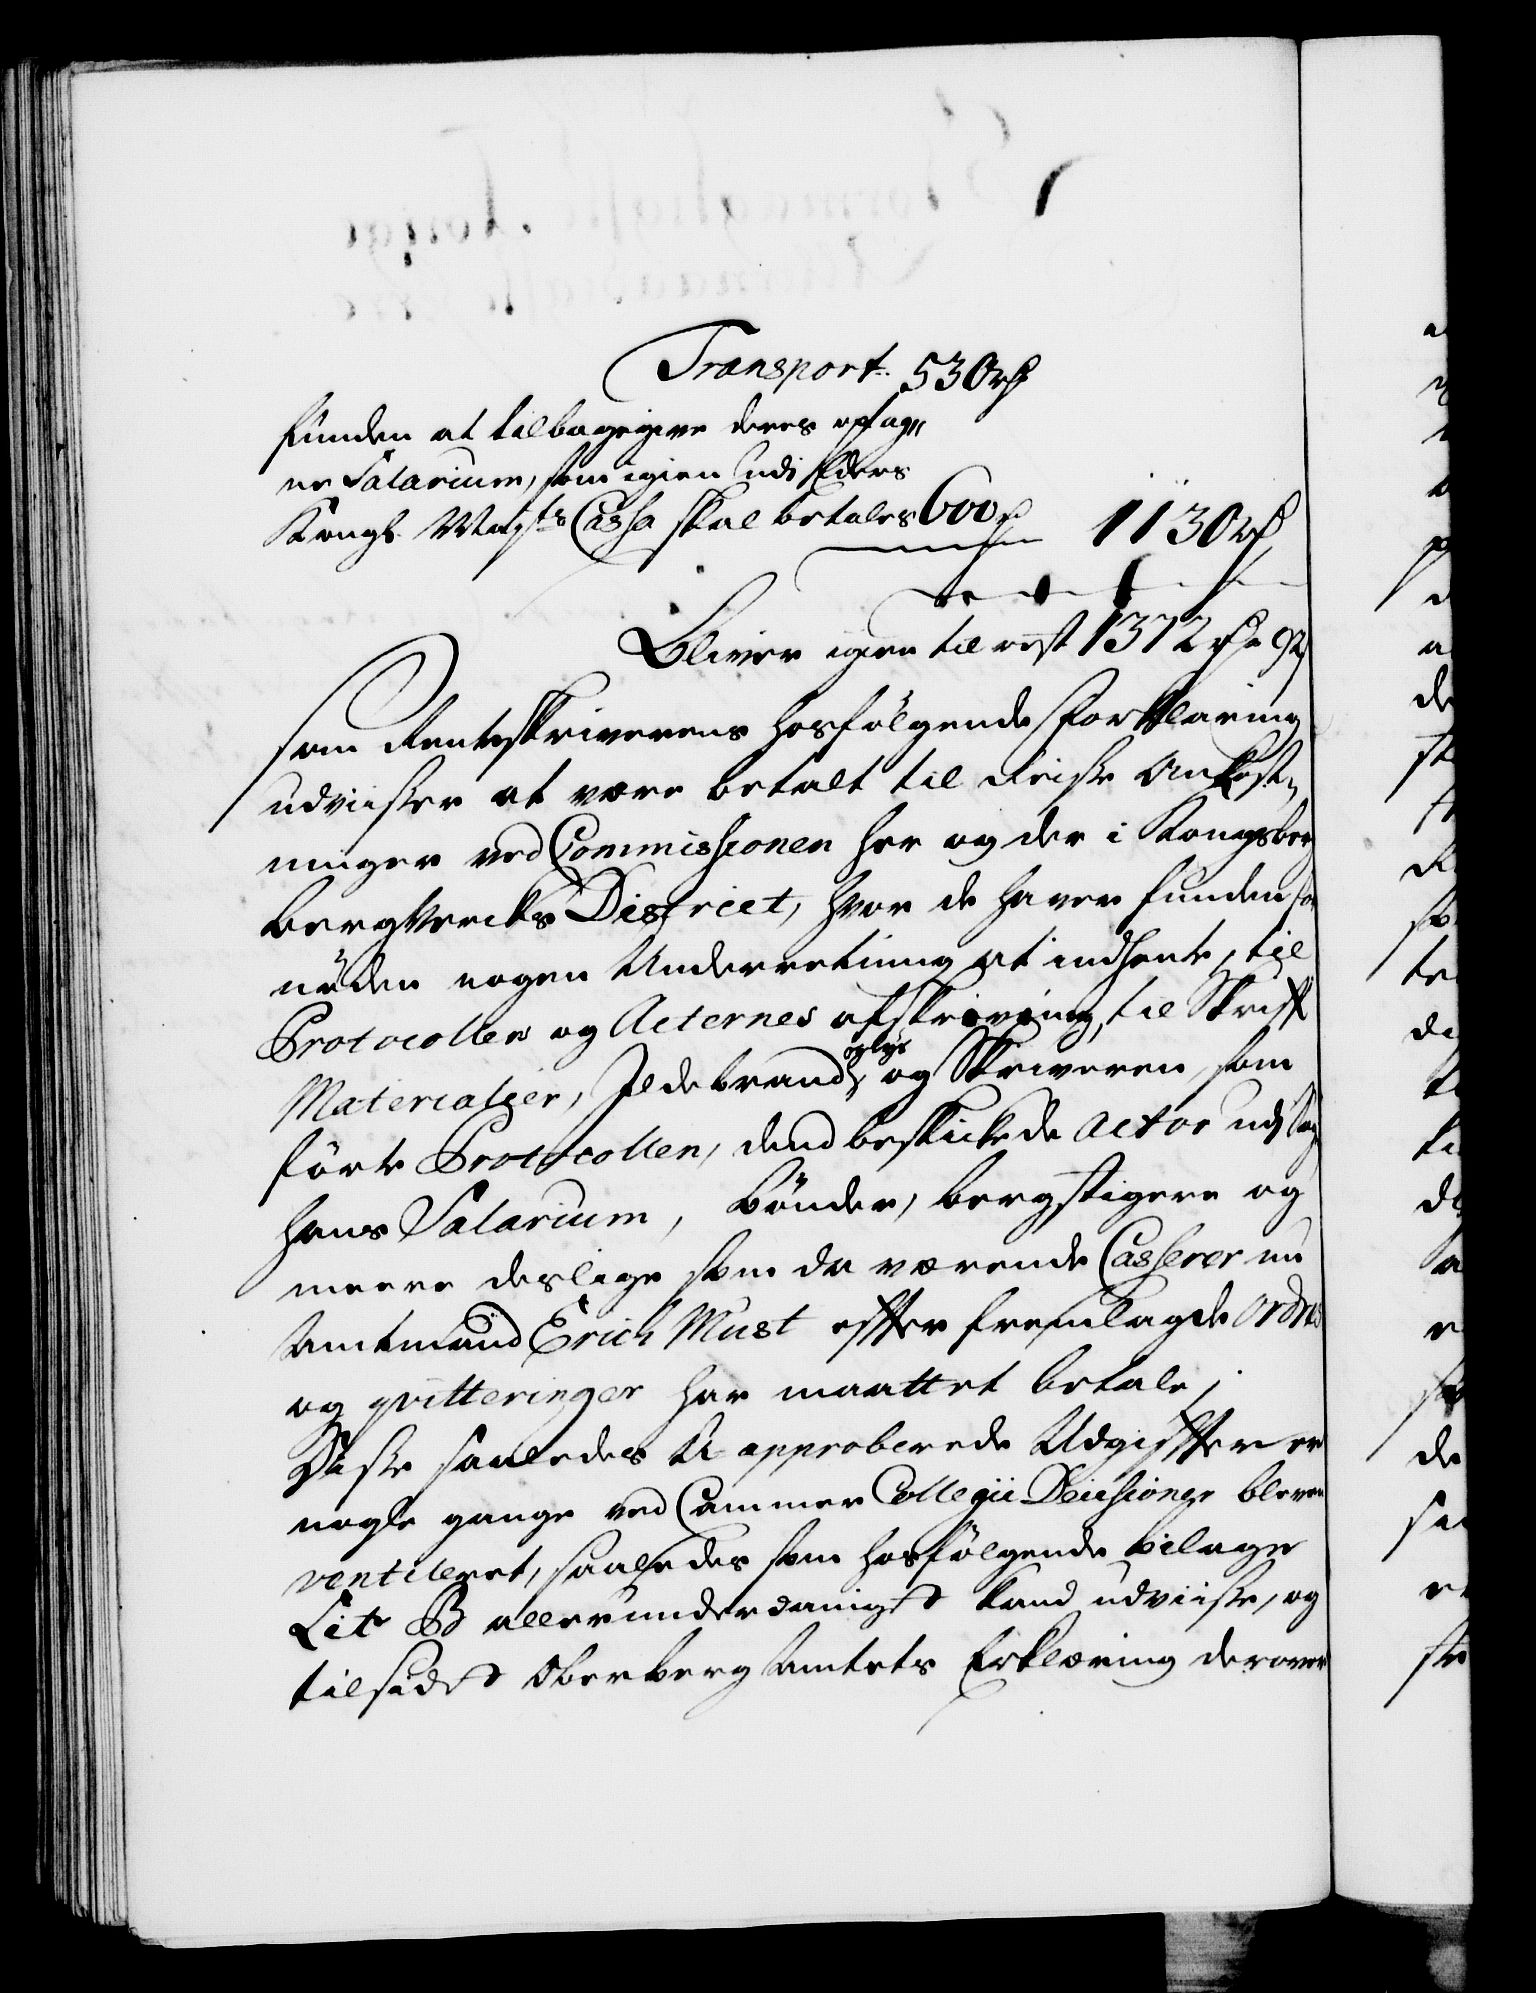 Transport. 530 rd
funden at tilbagegive deres opsag„
ne Salarium, som igien udi Eders
Kongl. Mayts Cassa skal betales 600 rd 1130 rd
Bliver igien til rest 1372 rd 92
som Rentskriverens hosfölgende Forklaring
udviiser at være betalt til Reise Omkost„
ninger ved Commissionen her og der i Kongsber
bergverks District, hvor de haver funden for
nöden nogen Underretning at indhente, til
Protocollens og Acternes afskrivning, til Skriff
Materialier, Ildebrand, oglys og Skriveren, som
förte Protocollen, dend beskickede Actor udi Sag
hans Salarium, bönder, bergstigere og
meere deslige som da værende Casserer nu
Amtmand Erich Must effter fremlagde Ordres
og qvitteringer har maattet betale;
Disse saaledes U-approberede Udgiffter er
nogle gange ved Cammer Collegii Decisioner bleven
ventileret, saaledes som hosfölgende bilage
Lit B allerunderdanigst kand udviise, og
tilsidst Oberberg Amtets Erklæring derover